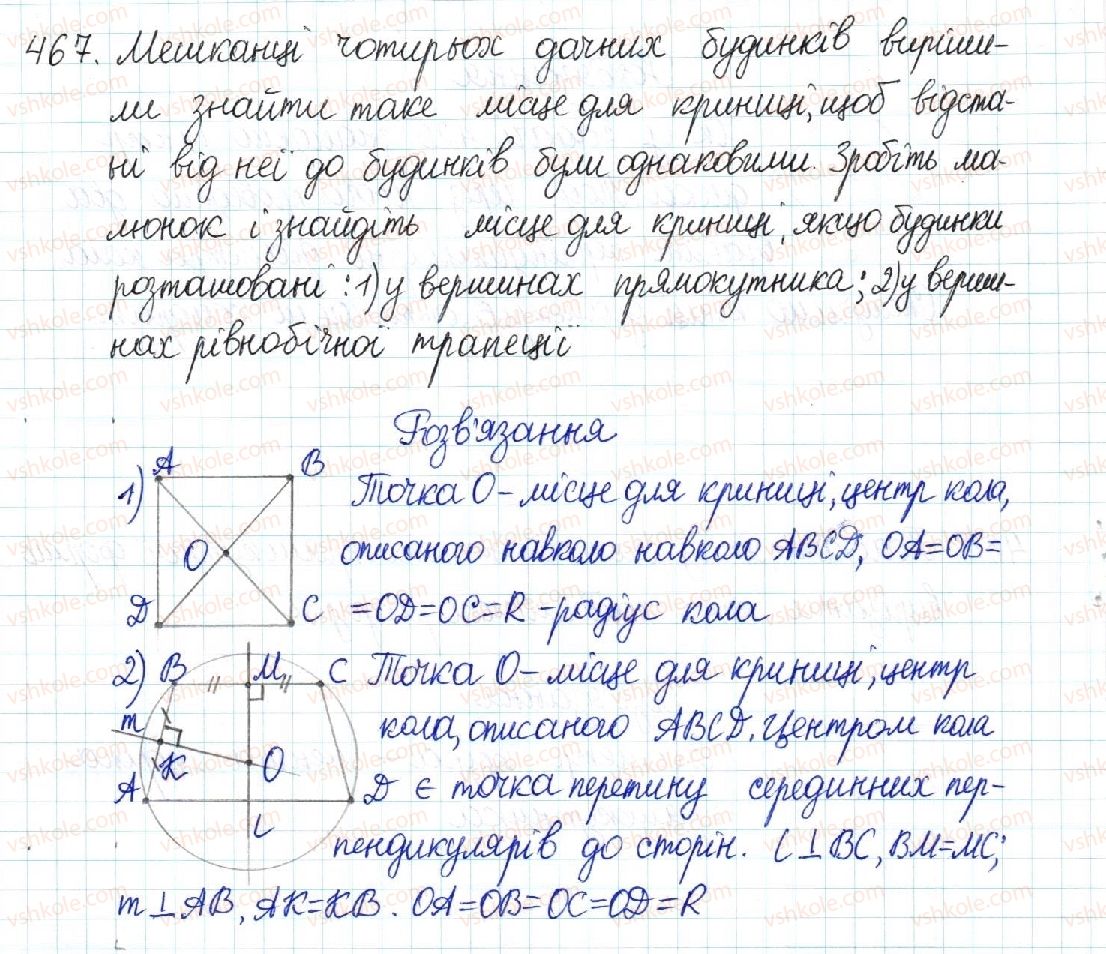 467. Мешканці чотирьох дачних будинків виріши-
ли знайти таке місце для криниці, щоб відста-
ні від неї до будинків були однаковими. Зробіть ма-
люнок і знайдіть місце для криниці, якщо будинки
розташовані: 1) у вершинах прямокутника; 2) у верши-
нах рівнобічної трапеції
Розв'язання
1) A B
O
D C
Точка О – місце для криниці, центр кола,
описаного навколо навколо ABCD, OA=OB=
=OD=OC=R - радіус кола
2) B M C
m
K O
A D
l
Точка О – місце для криниці, центр
кола, описаного ABCD. Центром кола
є точка перетину серединних пер-
пендикулярів до сторін. l⊥BC, BM=MC;
m⊥AB, AK=KB. OA=OB=OC=OD=R
vshkole.com